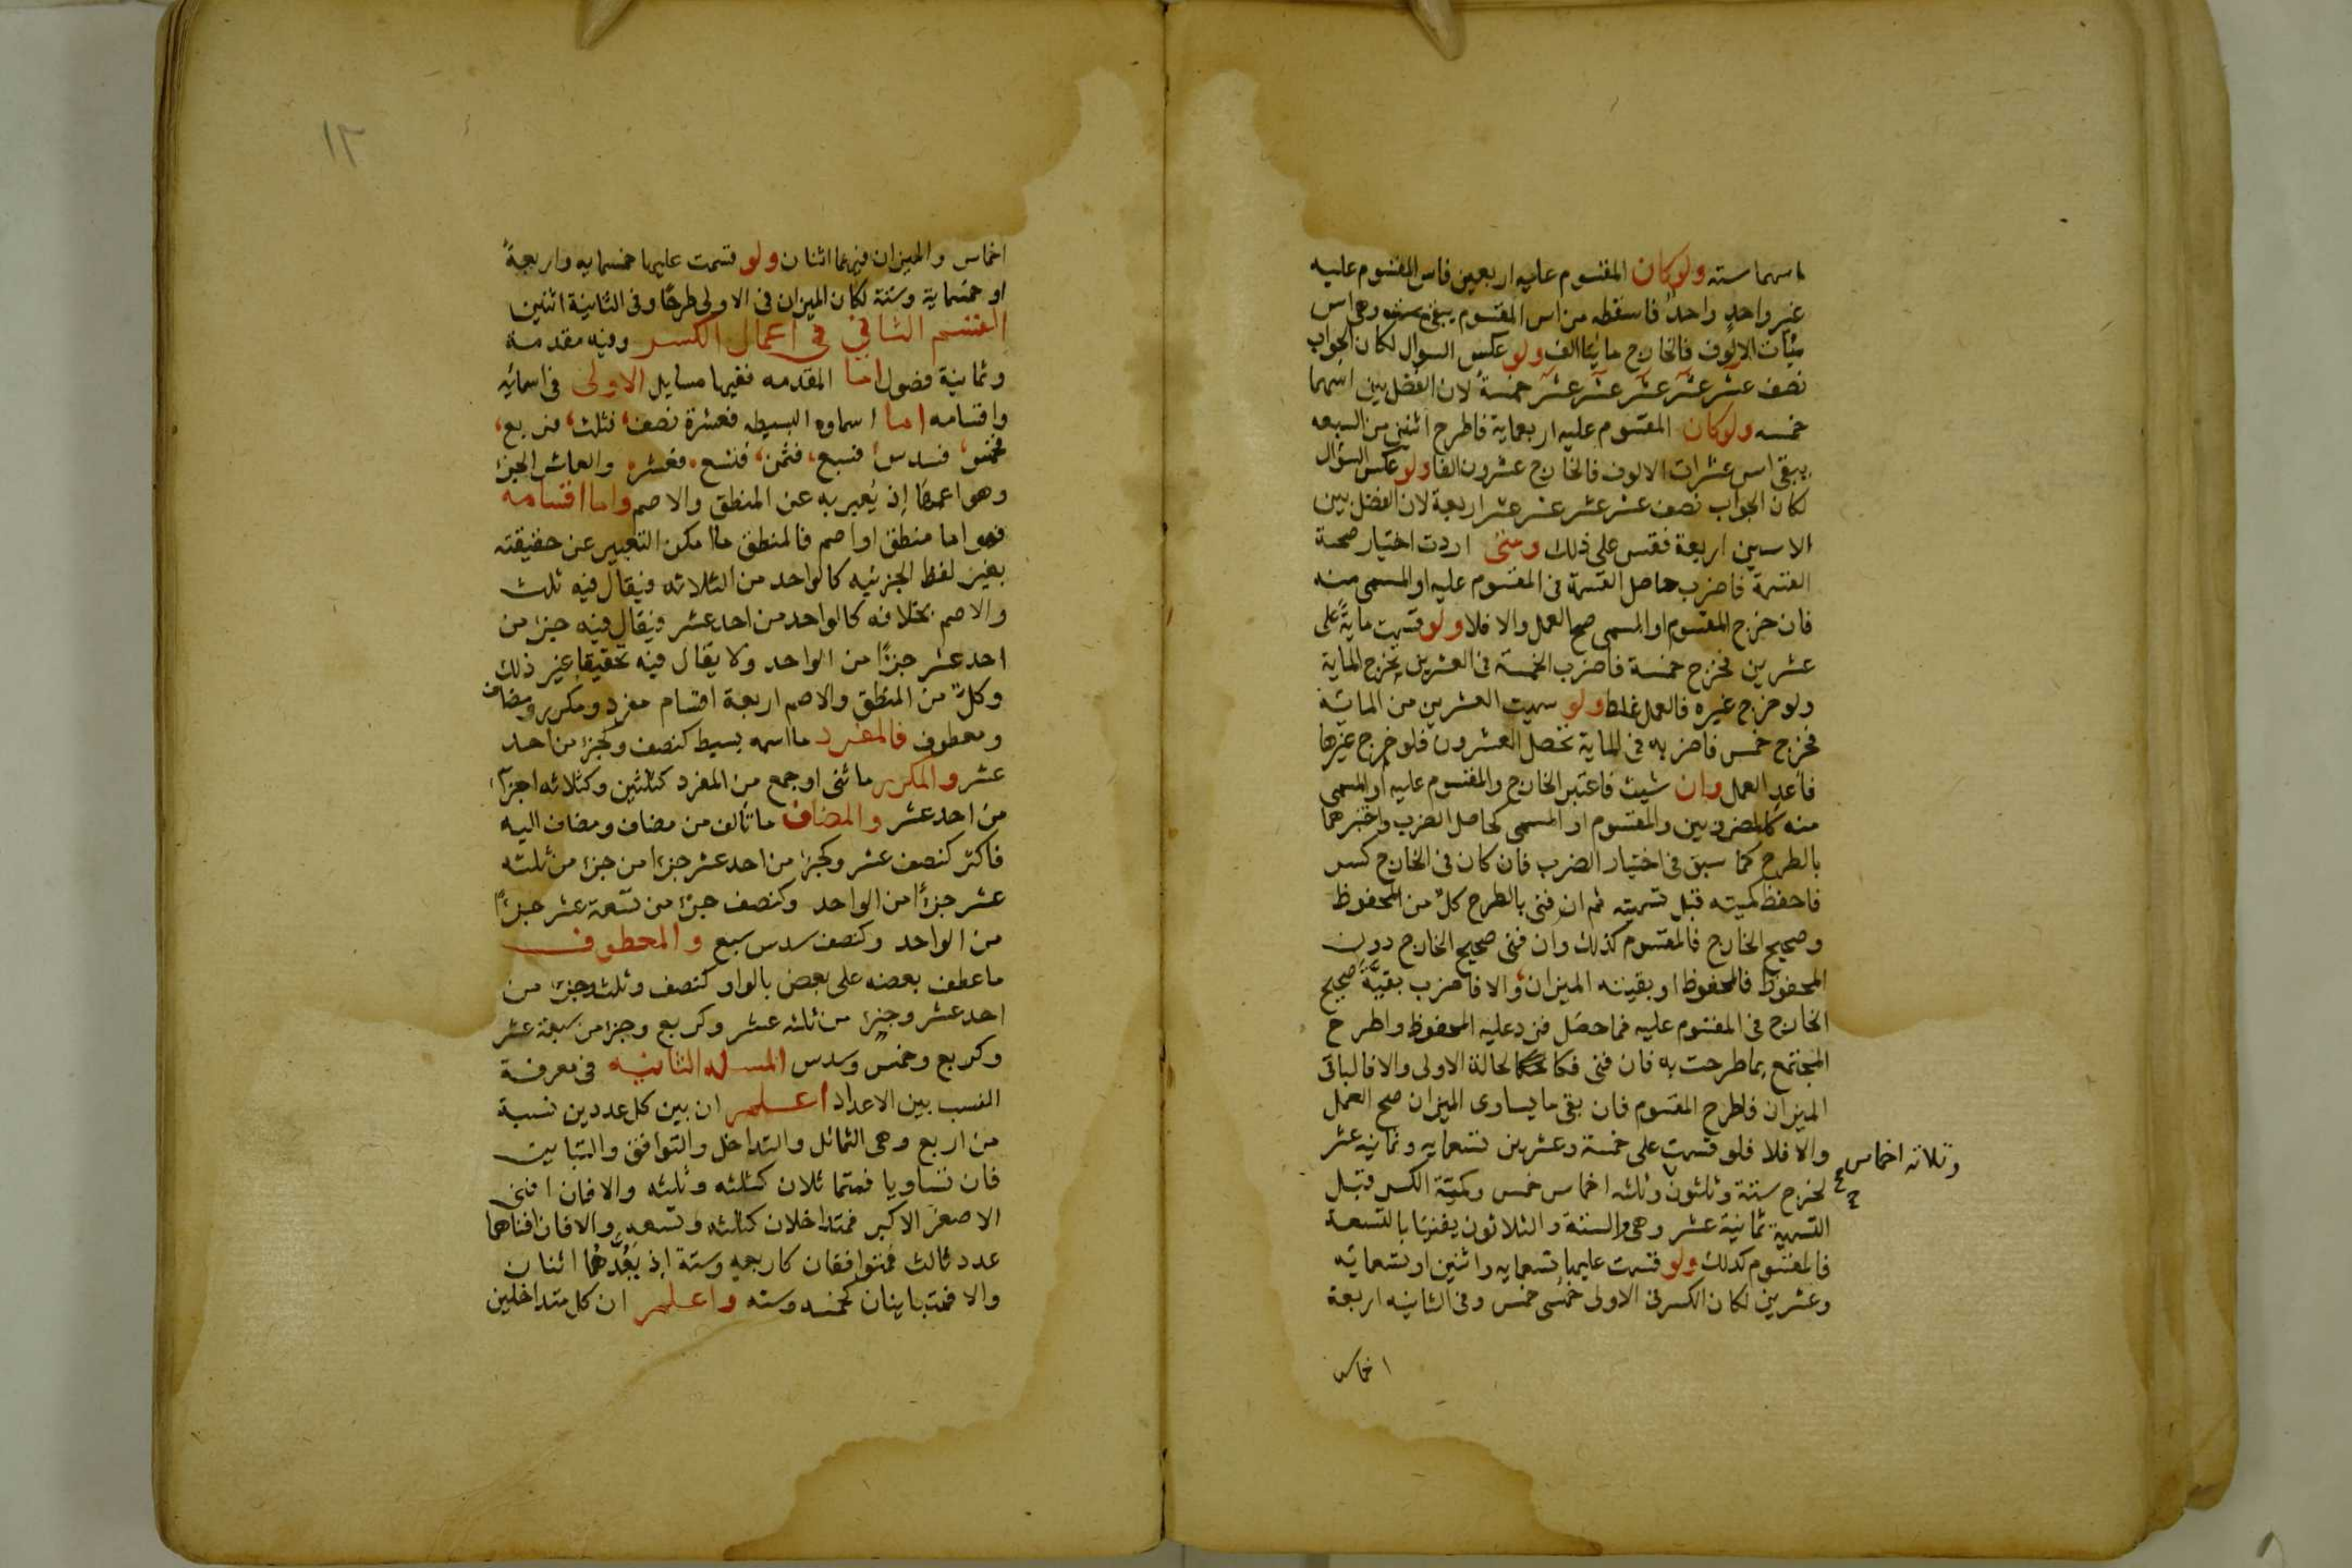 اسهما سته ولو كان المقسوم عليه اربعين فاس المقسوم عليه
غير واحد واحد فاسقطه من اس المقسوم يبقى وهى اس
مئات الالوف فالخارج مائتا الف ولو عكس السوال لكان الجواب
نصف عشر عشر عشر عشر عشر خمسة لان الفضل بين اسهما
خمسه ولو كان المقسوم عليه اربعماية فاطرح اثنين من السبعه
يبقى اس عشرات الالوف فالخارج عشرون الفا ولو عكس السؤال
لكان الجواب نصف عشر عشر عشر عشر اربعة لان الفضل بين
الاسين اربعة فقس على ذلك ومتى اردت اختبار صحة
القسمة فاضرب حاصل القسمة فى المقسوم عليه او المسمى منه
فان خرج المقسوم او المسمى صح العمل والا فلا ولو قسمت مايةً على
عشرين فخرج خمسة فاضرب الخمسة فى العشرين يخرج الماية
ولو خرج غيره فالعمل غلط ولو سميت العشرين من الماية
فخرج خمس فاضربه فى الماية تحصل العشرون فلو خرج غيرها
فاعد العمل وان شيت فاعتبر الخارج والمقسوم عليه او المسمى
منه كالمضروبين والمقسوم او المسمى كحاصل الضرب واختبرهما
بالطرح كما سبق فى اختبار الضرب فان كان فى الخارج كسر
فاحفظ كميته قبل تسميته ثم ان فنى بالطرح كل من المحفوظ
وصحيح الخارج فالمقسوم كذلك وان فنى صحيح الخارج دون
المحفوظ فالمحفوظ او بقيته الميزان والا فاضرب بقيةَ صحيح
الخارج فى المقسوم عليه فما حصل فزد عليه المحفوظ واطرح
المجتمع بما طرحت به فان فنى فكالحالة الاولى والا فالباقى
الميزان فاطرح المقسوم فان بقى ما يساوى الميزان صح العمل
والا فلا فلو قسمت على خمسة وعشرين تسعمايه وثمانيه عشر
وثلاثه اخماس
لخرج ستة وثلثون وثلثه اخماس خمس وكمية الكسر قبل
التسمية ثمانية عشر وهى والستة والثلاثون يفنيا بالتسعة
فالمقسوم كذلك ولو قسمت عليها تسعمايه واثنين او تسعمايه
وعشرين لكان الكسر فى الاولى خمسى خمس وفى الثانيه اربعة
اخماس
١٢
اخماس والميزان فيهما اثنان ولو قسمت عليها خمسمايه واربعةً
او خمسماية وستة لكان الميزان فى الاولى طرحًا وفى الثانية اثنين
القسم الثانى فى اعمال الكسر وفيه مقدمة
وثمانية فصول اما المقدمه ففيها مسايل الاولى فى اسمائه
واقسامه اما اسماوه البسيطه فعشرة نصف، فثلث، فربع،
فخمس، فسدس، فسبع، فثمن، فتسع، فعشر، والعاشر الجزء
وهو اعمها اذ يُعبر به عن المنطق والاصم واما اقسامه
فهو اما منطق او اصم فالمنطق ما امكن التعبير عن حقيقته
بغير لفظ الجزئيه كالواحد من الثلاثه فيقال فيه ثلث
والاصم بخلافه كالواحد من احد عشر فيقال فيه جزء من
احد عشر جزءًا من الواحد ولا يقال فيه تحقيقا غير ذلك
وكلٌ من المنطق والاصم اربعة اقسام مفرد ومكرر ومضاف
ومعطوف فالمفرد ما اسمه بسيط كنصف وكجزء من احد
عشر والمكرر ما ثنى او جمع من المفرد كثلثين وكثلاثه اجزآء
من احد عشر والمضاف ما تالف من مضاف ومضاف اليه
فاكثر كنصف عشر وكجزء من احد عشر جزءا من جزء من ثلثه
عشر جزءًا من الواحد وكنصف جزء من تسعة عشر جزءًا
من الواحد وكنصف سدس سبع والمعطوف
ما عطف بعضه على بعض بالواو كنصف وثلث وجزء من
احد عشر وجزء من ثلثه عشر وكربع وجزء من سبعة عشر
وكربع وخمس وسدس المسله الثانيه فى معرفة
النسب بين الاعداد اعلم ان بين كل عددين نسبة
من اربع وهى التماثل والتداخل والتوافق والتباين
فان تساويا فمتماثلان كثلثه وثلثه والا فان افنى
الاصغر الاكبر فمتداخلان كثلثه وتسعه والا فان افناهما
عدد ثالث فمتوافقان كاربعه وستة اذ يَعُدُّهُما اثنان
والا فمتباينان كخمسه وسته واعلم ان كل متداخلين